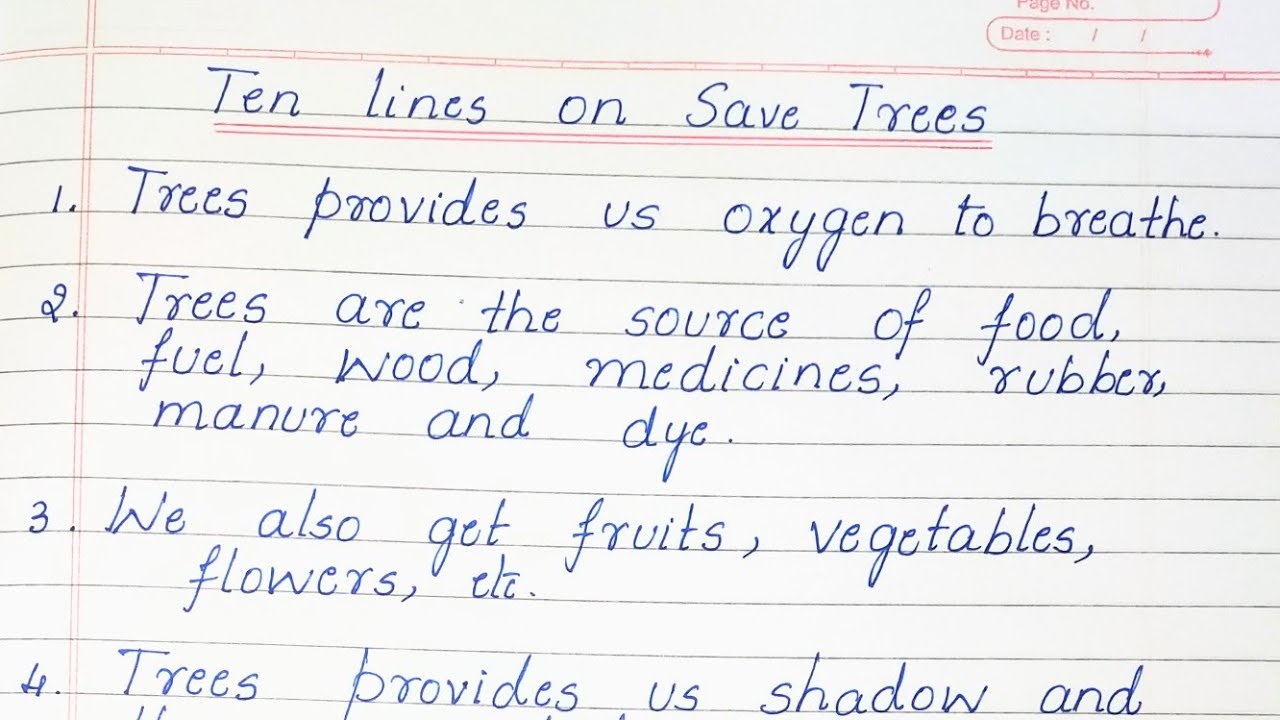 Page No.
Date : / /
Ten lines on Save Trees
1. Trees provides us oxygen to breathe.
2. Trees are the source of food,
fuel, wood, medicines, rubber,
manure and dye.
3. We also get fruits, vegetables,
flowers, etc.
4. Trees provides us shadow and